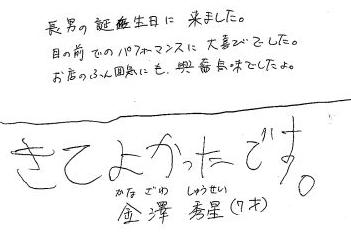 長男の誕生日に来ました。
目の前でのパフォーマンスに大喜びでした。
お店のふん囲気にも、興奮気味でしたよ。
きてよかったです。
かなざわ しゅうせい
金澤 秀星(7才)